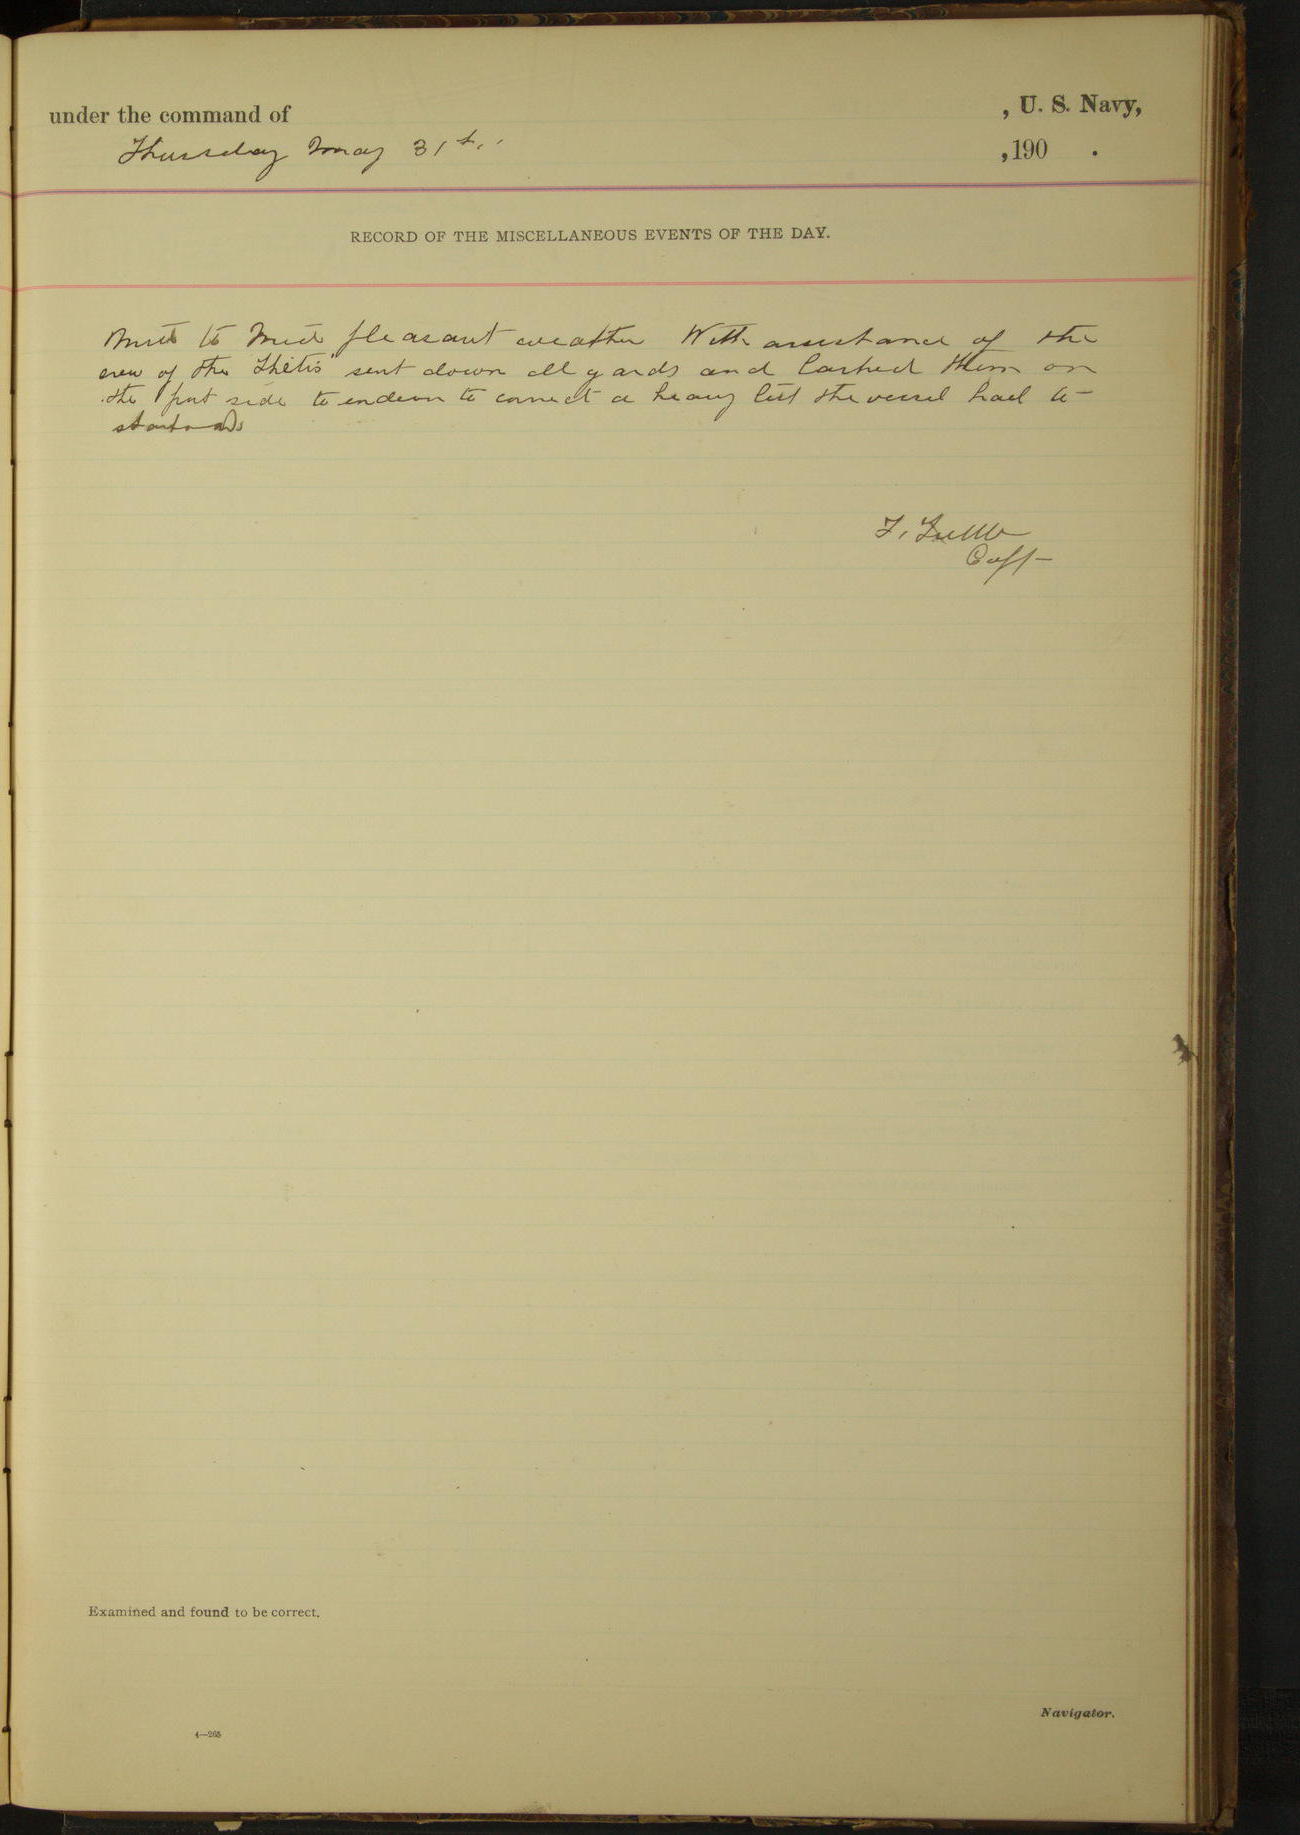 under the command of , U. S. Navy,
Thursday May 31st. ,190 .
RECORD OF THE MISCELLANEOUS EVENTS OF THE DAY.
Mid to Mid pleasant weather With assistance of the
crew of the "Thetis" sent down all yards and lashed them on
the port side to endeavor to correct a heavy list the vessel had to
starboard
F. Tuttle
Capt
Examined and found to be correct.
Navigator.
4—265